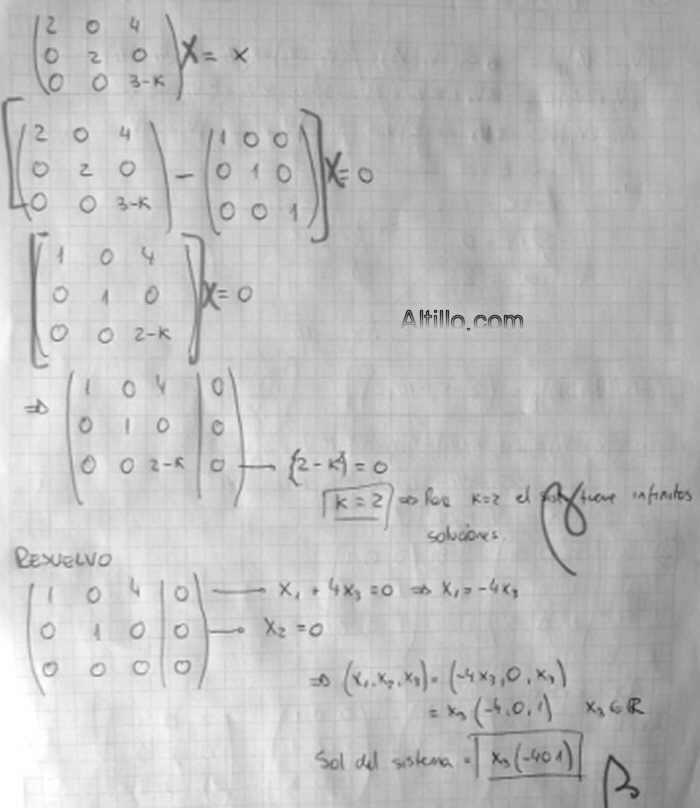 2 0 4
0 2 0 X = X
0 0 3-K
2 0 4 1 0 0
0 2 0 - 0 1 0 X = 0
0 0 3-K 0 0 1
1 0 4
0 1 0 X = 0
0 0 2-K
Altillo.com
⇒ 1 0 4 | 0
0 1 0 | 0
0 0 2-K | 0 → (2-K) = 0
K = 2 ⇒ Para K=2 el tiene infinitas
soluciones.
RESUELVO
1 0 4 | 0 → X₁ + 4X₃ = 0 ⇒ X₁ = -4X₃
0 1 0 | 0 → X₂ = 0
0 0 0 | 0
⇒ (X₁, X₂, X₃) = (-4X₃, 0, X₃)
= X₃ (-4, 0, 1) X₃ ∈ ℝ
Sol del sistema = X₃ (-4 0 1)